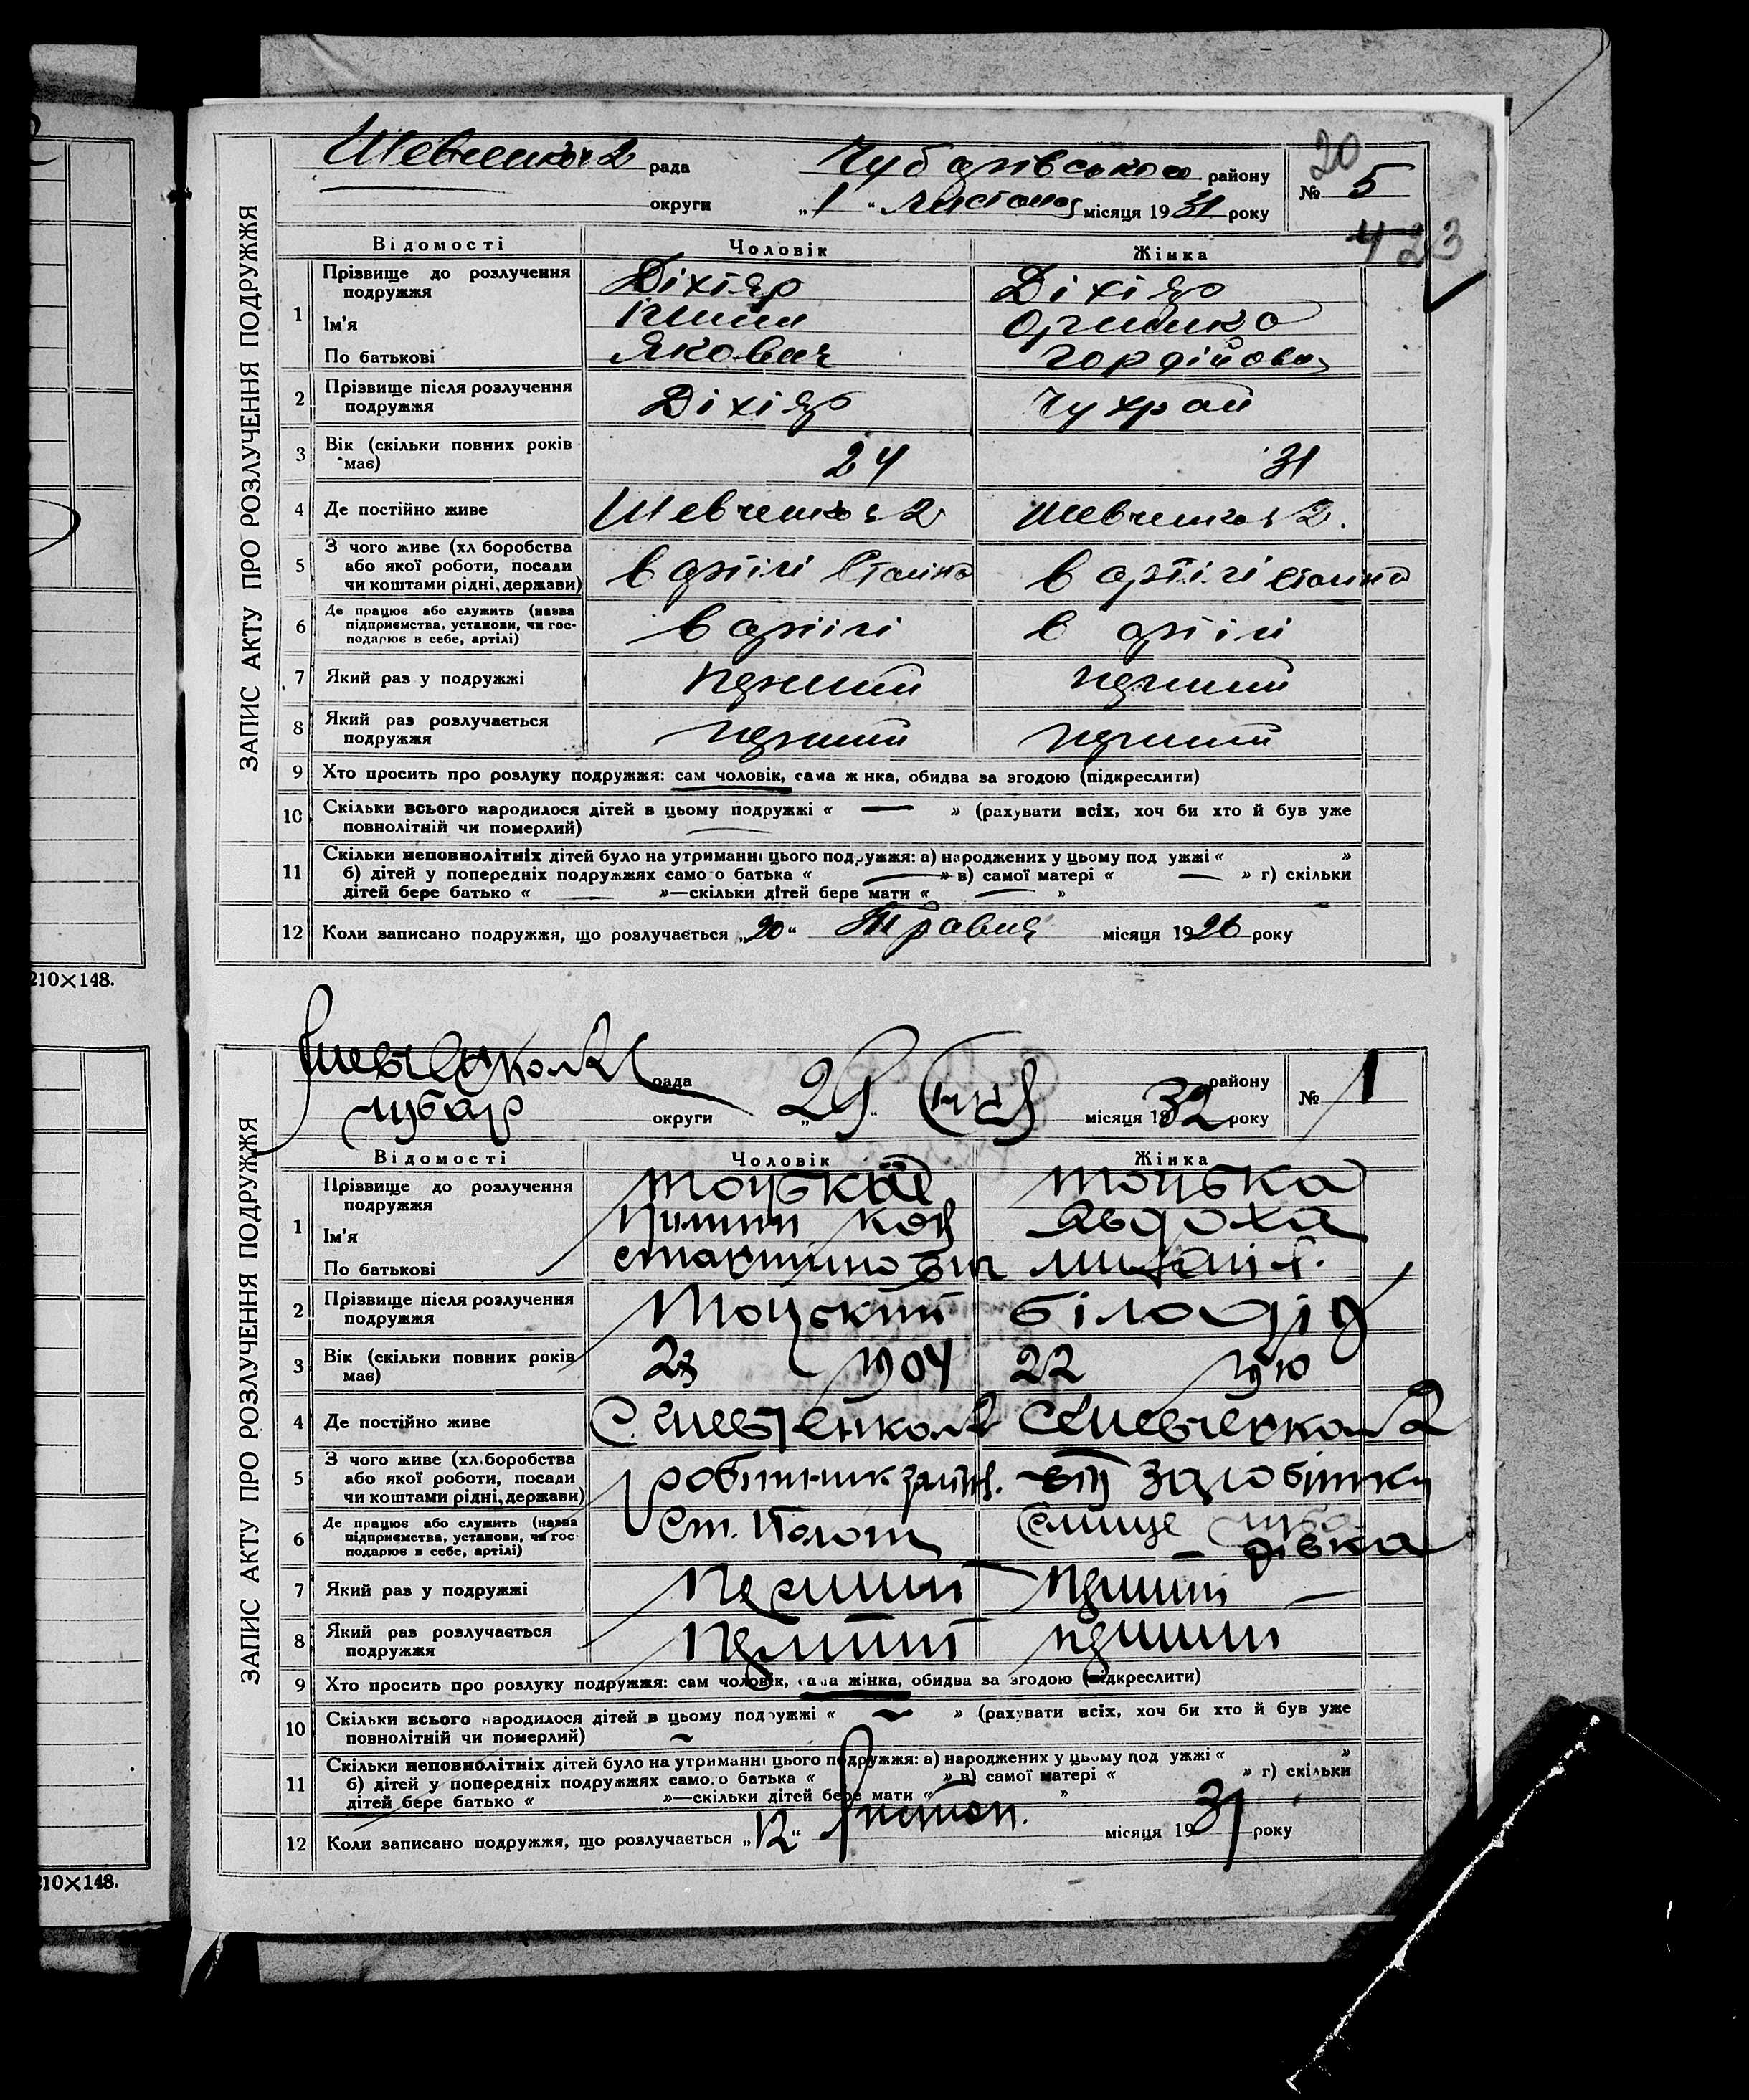 20
Шевченко 2 рада Чубарівського району № 5
округи „1“ листопад місяця 1931 року
423
ЗАПИС АКТУ ПРО РОЗЛУЧЕННЯ ПОДРУЖЖЯ
Відомості Чоловік Жінка
1 Прізвище до розлучення подружжя Діхтяр Діхтяр
Ім'я
По батькові Якович Гордійовна
2 Прізвище після розлучення подружжя Діхтяр Чухрай
3 Вік (скільки повних років має) 24 31
4 Де постійно живе Шевченко 2 Шевченко 2.
5 З чого живе (хл боробства або якої роботи, посади чи коштами рідні, держави) в артілі Сталіна в артілі Сталіна
6 Де працює або служить (назва підприємства, установи, чи господарює в себе, артілі) в артілі в артілі
7 Який раз у подружжі перший перший
8 Який раз розлучається подружжя перший перший
9 Хто просить про розлуку подружжя: сам чоловік, сама ж нка, обидва за згодою (підкреслити)
10 Скільки всього народилося дітей в цьому подружжі « — » (рахувати всіх, хоч би хто й був уже
повнолітній чи померлий)
11 Скільки неповнолітніх дітей було на утриманні цього подружжя: а) народжених у цьому под ужжі « »
б) дітей у попередніх подружжях само о батька « — » в) самої матері « — » г) скільки
дітей бере батько « — »—скільки дітей бере мати « — »
12 Коли записано подружжя, що розлучається „20“ Травня місяця 1926 року
210×148.
Шевченко 2 рада району № 1
Чубар округи „29“ місяця 1932 року
ЗАПИС АКТУ ПРО РОЗЛУЧЕННЯ ПОДРУЖЖЯ
Відомості Чоловік Жінка
1 Прізвище до розлучення подружжя Тоцька
Ім'я Пилип Явдоха
По батькові
2 Прізвище після розлучення подружжя Тоцький Білодід
3 Вік (скільки повних років має) 1904 22
4 Де постійно живе С. Шевченко 2 С Шевченко 2
5 З чого живе (хл.боробства або якої роботи, посади чи коштами рідні, держави) робітник заліз. від заробітку
6 Де працює або служить (назва підприємства, установи, чи господарює в себе, артілі) Ст. Полог
7 Який раз у подружжі перший перший
8 Який раз розлучається подружжя перший перший
9 Хто просить про розлуку подружжя: сам чоловік, сама жінка, обидва за згодою (підкреслити)
10 Скільки всього народилося дітей в цьому подружжі « ~ » (рахувати всіх, хоч би хто й був уже
повнолітній чи померлий)
11 Скільки неповнолітніх дітей було на утриманні цього подружжя: а) народжених у цьому под ужжі « »
б) дітей у попередніх подружжях само о батька « » в) самої матері « » г) скільки
дітей бере батько « »—скільки дітей бере мати « »
12 Коли записано подружжя, що розлучається „12“ листоп. місяця 1931 року
10×148.